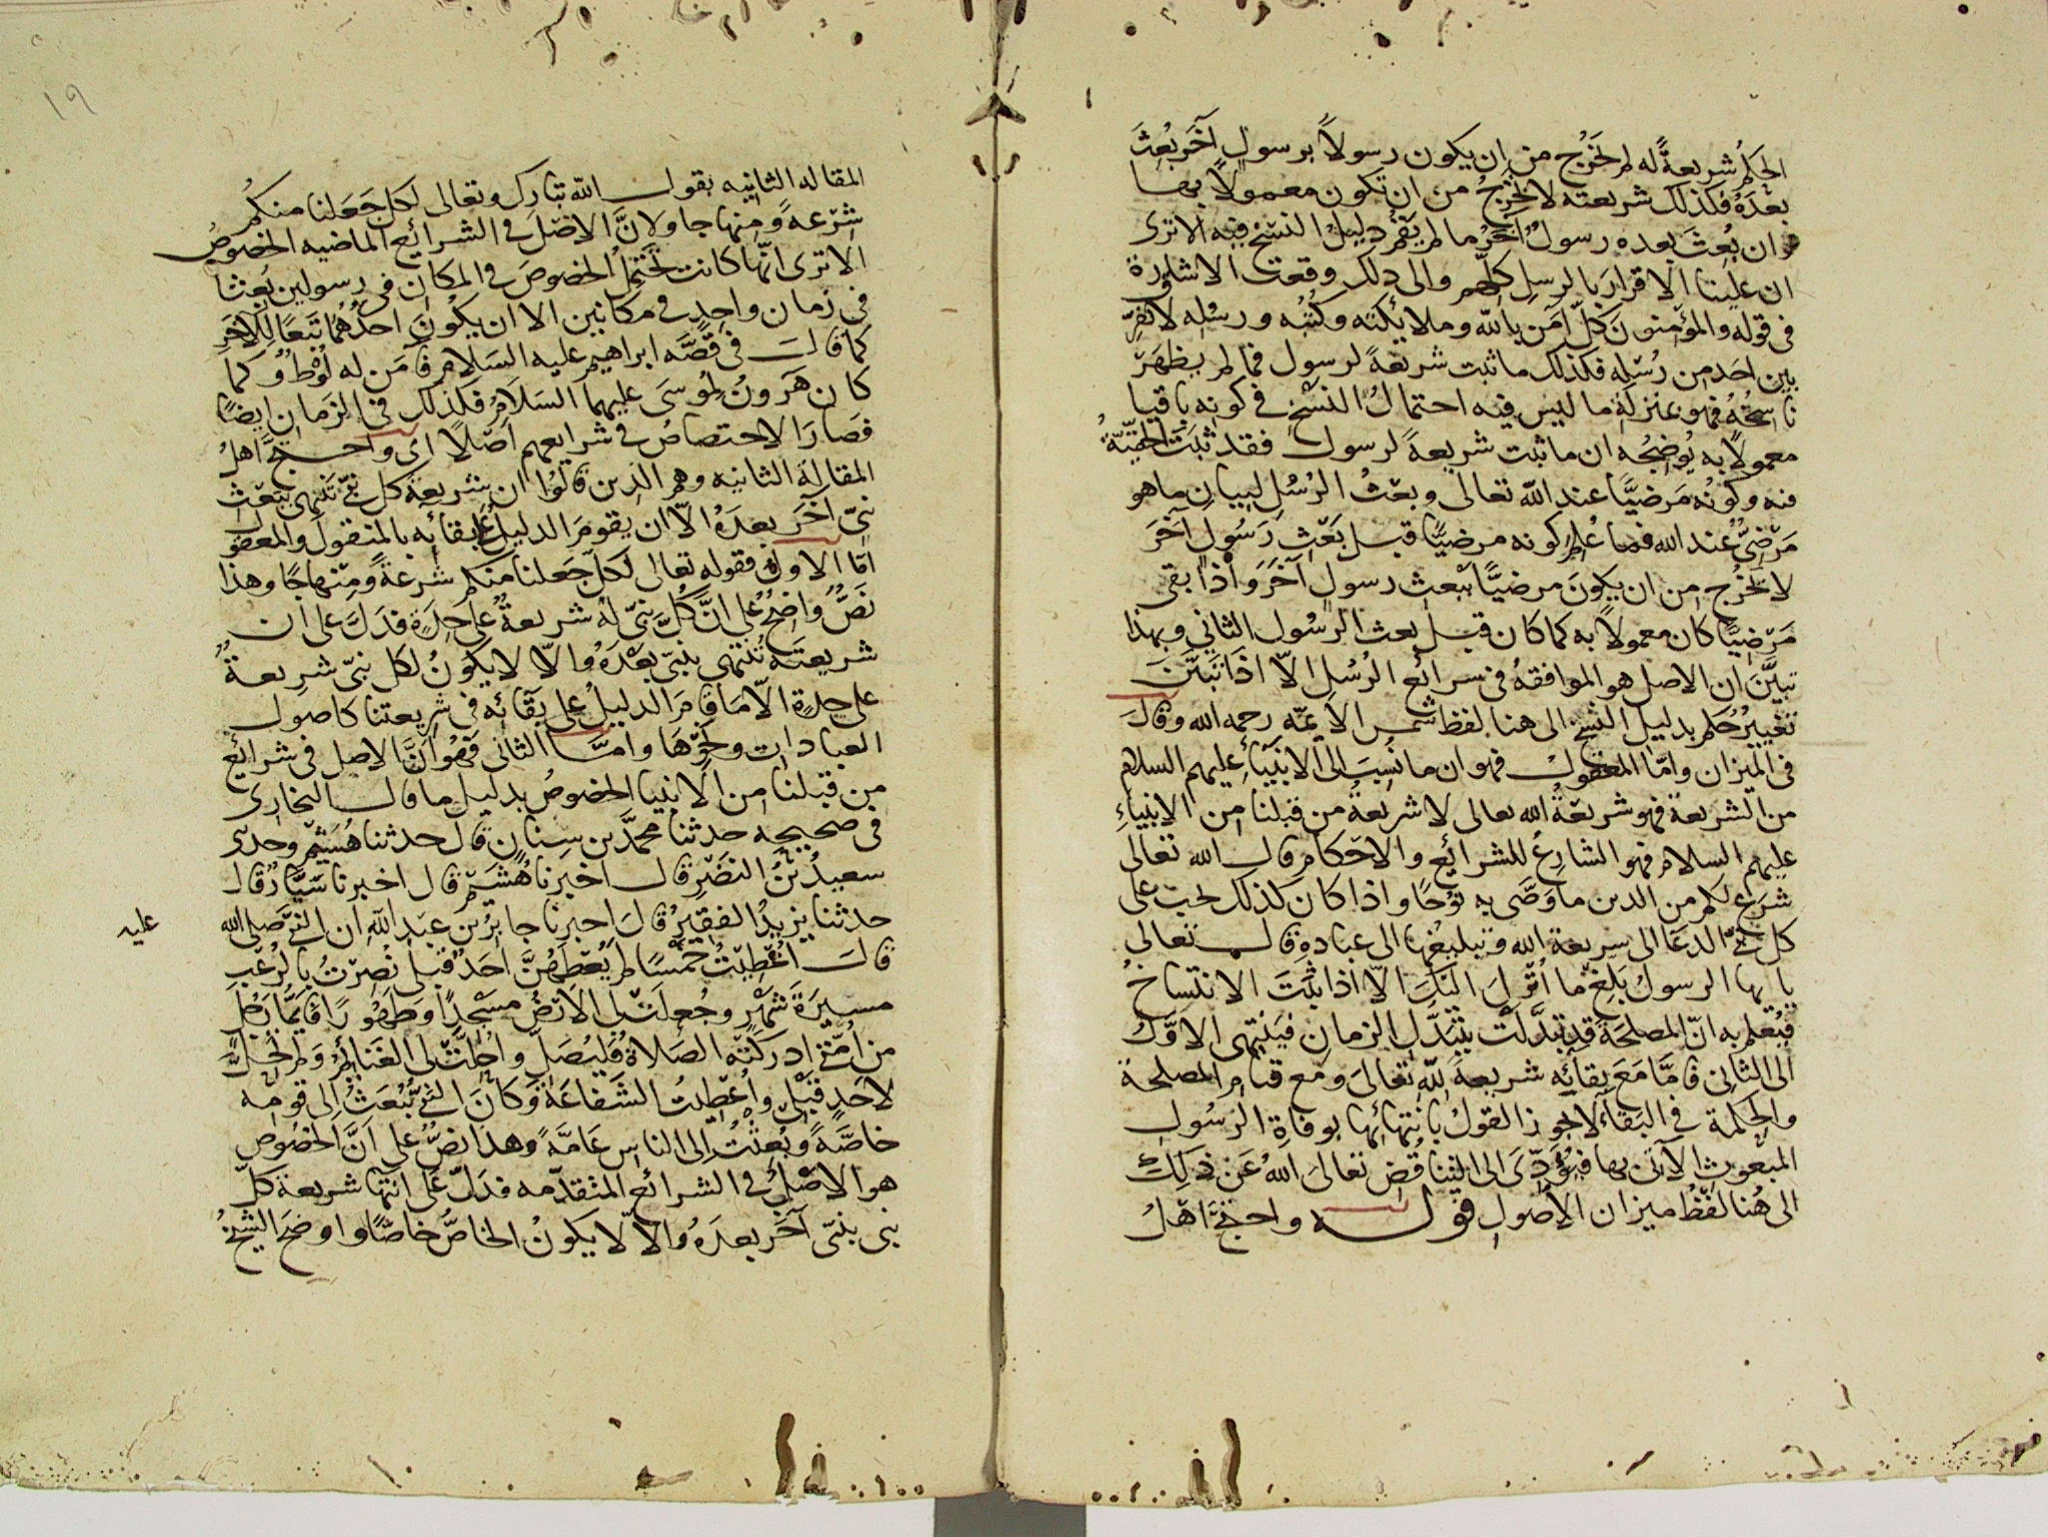 الحكم شريعةً له لم يخرج من ان يكون رسولاً برسول آخر بُعث
بعده فكذلك شريعته لا تخرج من ان تكون معمولاً بها
وان بُعث بعده رسولٌ آخر ما لم يقم دليل النسخ فيه الا ترى
ان علينا الاقرار بالرسل كلهم والى ذلك وقعت الاشارة
فى قوله والمؤمنون كل آمن بالله وملائكته وكتبه ورسله لا نفرق
بين احد من رسله فكذلك ما ثبت شريعةً لرسول فما لم يظهر
ناسخه فهو بمنزلة ما ليس فيه احتمال النسخ فى كونه باقيا
معمولاً به يوضحه ان ما ثبت شريعةً لرسول فقد ثبتت الحقيّةُ
فيه وكونه مرضيًّا عند الله تعالى وبعث الرسل لبيان ما هو
مرضىٌّ عند الله فما عُلم كونه مرضيًّا قبل بعث رسول آخر
لا يخرج من ان يكون مرضيًّا ببعث رسول آخر واذا بقى
مرضيًّا كان معمولاً به كما كان قبل بعث الرسول الثاني وبهذا
تبيّن ان الاصل هو الموافقة فى شرائع الرسل الّا اذا تبيّن
تغيير حكم بدليل النسخ الى هنا لفظ شمس الائمّة رحمه الله وقال
فى الميزان وامّا المعقول فهو ان ما نُسب الى الانبياء عليهم السلام
من الشريعة فهو شريعة الله تعالى لا شريعة من قبلنا من الانبياء
عليهم السلام فهو الشارع للشرائع والاحكام قال الله تعالى
شرع لكم من الدين ما وصّى به نوحًا واذا كان كذلك يجب على
كل نبي الدعا الى شريعة الله وتبليغها الى عباده قال تعالى
يا ايها الرسول بلغ ما انزل اليك الّا اذا ثبت الانتساخ
فيُعلم به انّ المصلحة قد تبدّلت بتبدّل الزمان فينتهى الاوّل
الى الثانى فامّا مع بقائه شريعةً لله تعالى ومع قيام المصلحة
والحكمة في البقاء لا يجوز القول بانتهائها بوفاة الرسول
المبعوث الآتى بها فيؤدّى الى التناقض تعالى الله عن ذلك
الى هُنا لفظ ميزان الاصول قوله واحتج اهل
١٩
المقاله الثانيه بقول الله تبارك وتعالى لكل جعلنا منكم
شرعةً ومنهاجا ولانّ الاصل فى الشرائع الماضيه الخصوص
الا ترى انّها كانت تحتمل الخصوص فى المكان فى رسولين بُعثا
فى زمان واحد فى مكانين الا ان يكون احدهما تبعًا للآخر
كما قال فى قصّة ابراهيم عليه السلام فآمن له لوط وكما
كان هرون لموسى عليهما السلام فكذلك فى الزمان ايضًا
فصار الاختصاص فى شرايعهم اصلاً اى واحتجّ اهل
المقالة الثانيه وهم الذين قالوا ان شريعة كل نبيّ تنتهى ببعث
نبىّ آخر بعده الّا ان يقوم الدليل على بقائه بالمنقول والمعقول
امّا الاول فقوله تعالى لكل جعلنا منكم شرعةً ومنهاجًا وهذا
نصٌّ واضحٌ على انّ كلّ نبىّ له شريعةٌ على حدةٍ فدلّ على ان
شريعته تنتهى بنبىّ بعده والّا لا يكون لكل نبىّ شريعةٌ
على حدةٍ الّا ما قام الدليل على بقائه فى شريعتنا كاصول
العبادات ونحوها وامّا الثانى فهو انّ الاصل فى شرائع
من قبلنا من الانبيا الخصوص بدليل ما قال البخارى
فى صحيحه حدثنا محمّد بن سنان قال حدثنا هُشيم وحدثنى
سعيد بن النضر قال اخبرنا هُشيم قال اخبرنا سيّار قال
حدثنا يزيد الفقير قال اخبرنا جابر بن عبد الله ان النبي صلى الله عليه
قال اُعطيت خمسًا لم يعطهنّ احد قبلى نُصرت بالرعب
مسيرة شهر وجُعلت لى الارض مسجدًا وطهورًا فايّما رجل
من امّتى ادركته الصلاة فليصلّ واُحلّت لى الغنائم ولم تحلّ
لاحد قبلى واُعطيت الشفاعة وكان النبي يُبعث الى قومه
خاصّةً وبُعثت الى الناس عامّةً وهذا نصٌّ على انّ الخصوص
هو الاصل فى الشرائع المتقدّمه فدلّ على انتها شريعة كلّ
نبى بنبىّ آخر بعده والّا لا يكون الخاصّ خاصًّا واوضح الشيخ